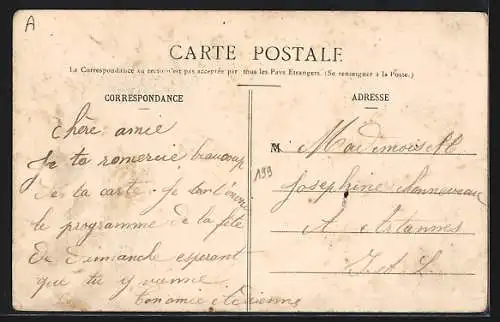 A
CARTE POSTALE
La Correspondance au recto n'est pas acceptée par tous les Pays Etrangers. (Se renseigner à la Poste.)
CORRESPONDANCE
Chère amie
Je te romercie beaucoup
de ta carte. je
le programme de la fête
de Dimanche esperant
que tu y vienne.
Ton amie
199
ADRESSE
M Mademoiselle
Josephine
A Artannes
I. et L.